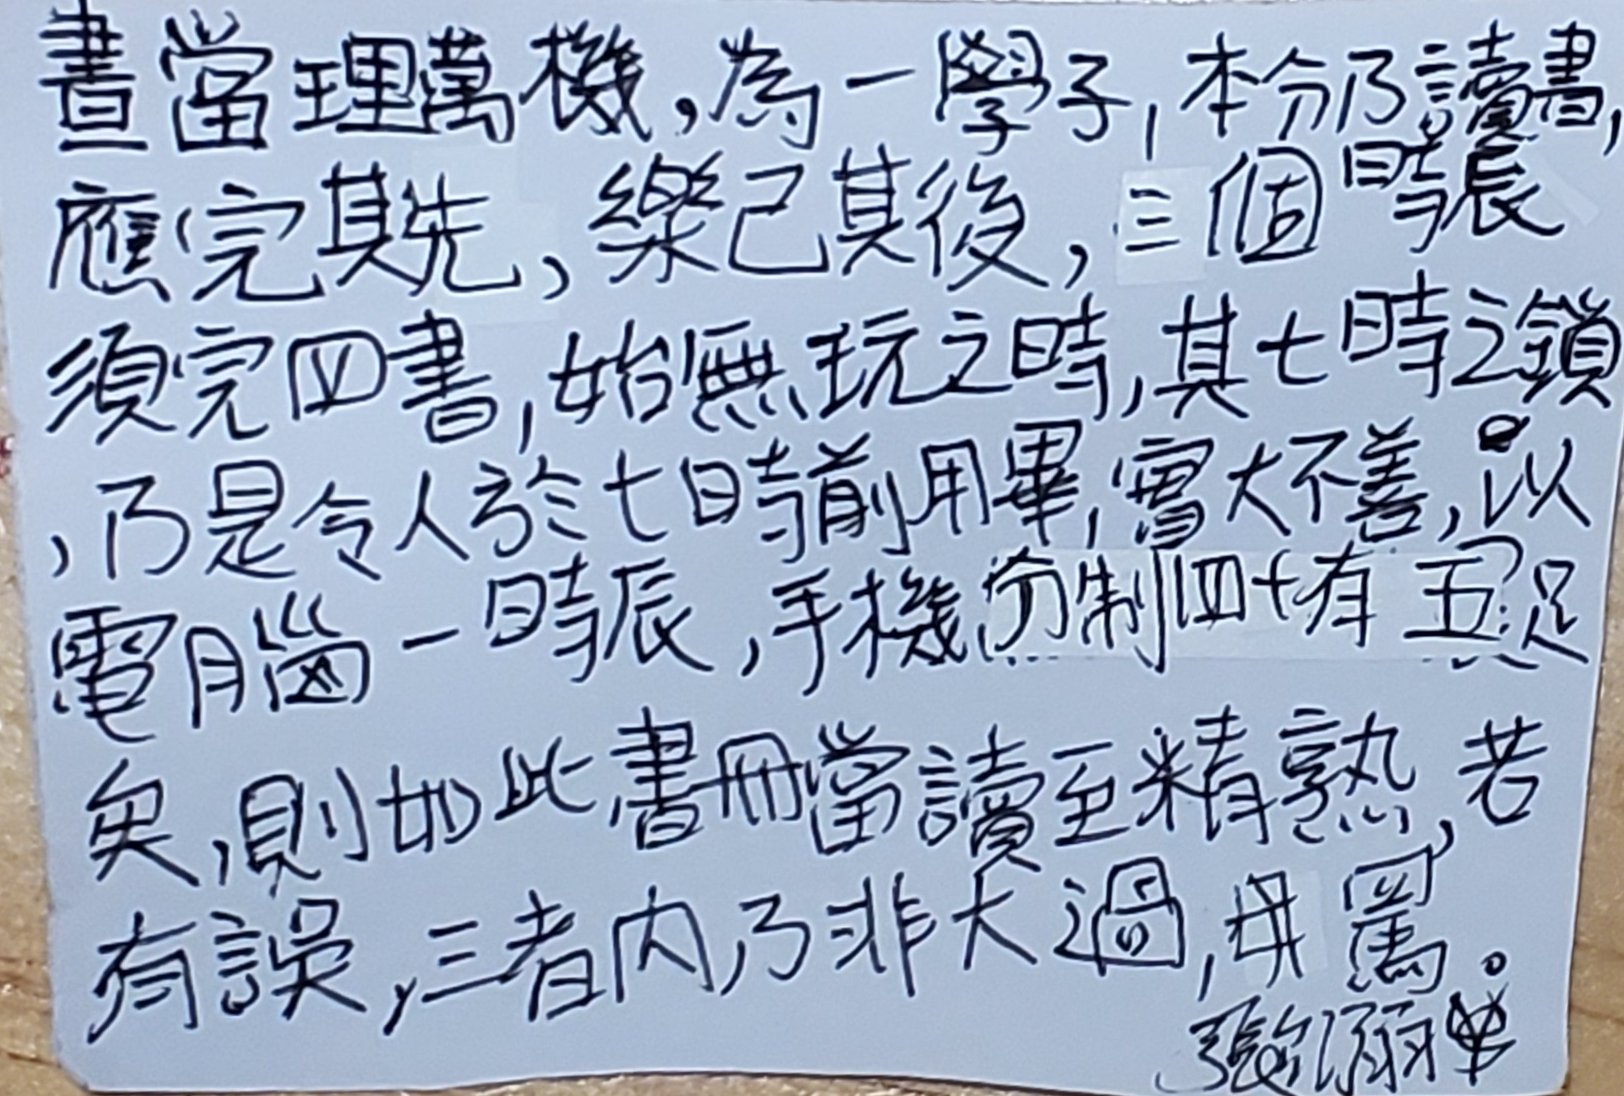 晝當理萬機,為一學子,本分乃讀書,
應完其先,樂己其後,三個時辰
須完四書,始無玩之時,其七時之鎖
,乃是令人於七時前用畢,實大不善,以
電腦一時辰,手機分制四十有五足
矣,則如此書冊當讀至精熟,若
有誤,三者內,乃非大過,毋罵。
張